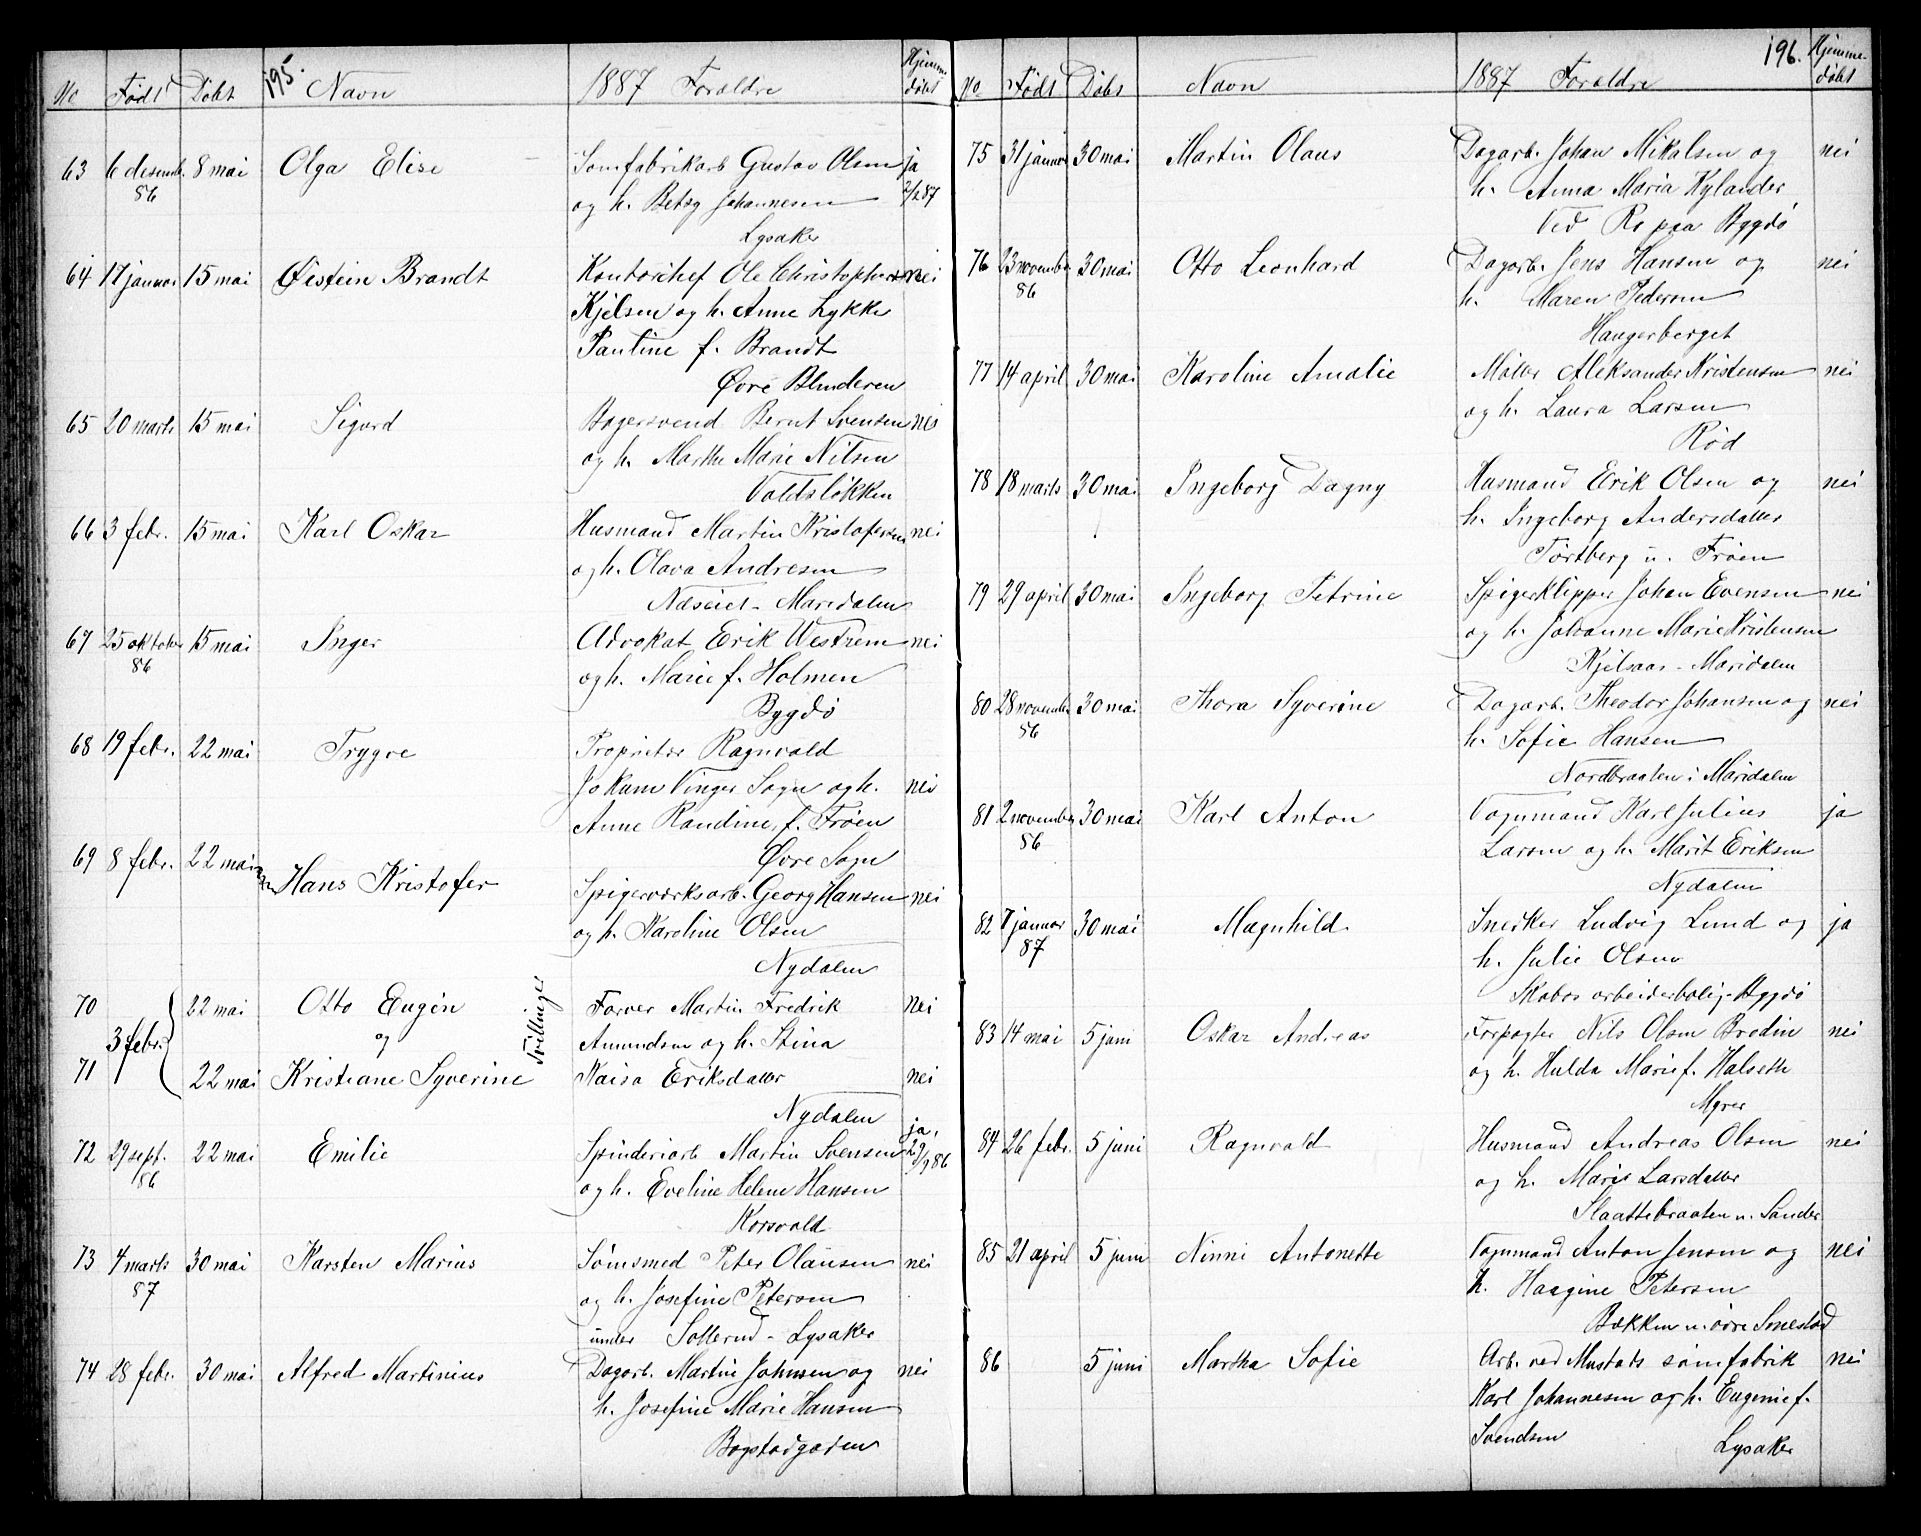 195.
No Født Døbt Navn 1887 Foraldre Hjemme-
døbt
63 6 desemb. 8 mai Olga Elise Sømfabrikarb Gustav Olsen ja
86 og h. Betzy Johannesen 2/1 87
Lysaker
64 17 januar 15 mai Øistein Brandt Kontorchef Ole Christophersen nei
Kjelsen og h. Anne Lykke
Pauline f. Brandt
Øvre Blinderen
65 20 marts 15 mai Sigurd Bagersvend Bernt Svensen nei
og h. Marthe Marie Nilsen
Valdsløkken
66 3 febr. 15 mai Karl Oskar Husmand Martin Kristofersen nei
og h. Olava Andresen
Næseiet - Maridalen
67 25 oktober 15 mai Inger Advokat Erik Westrem nei
86 og h. Marie f. Holmen
Bygdø
68 19 febr. 22 mai Trygve Proprietær Ragnvald
Jokum Vinger Sogn og h. nei
Anne Randine f. Frøen
Øvre Sogn
69 8 febr. 22 mai Hans Kristofer Spigerværksarb. Georg Hansen nei
og h. Karoline Olsen
Nydalen
70 22 mai Otto Eugen Farver Martin Fredrik nei
3 febr. og Tvillinger Amundsen og h. Stina
71 22 mai Kristiane Syverine Kaisa Eriksdatter nei
Nydalen
72 29 sept. 22 mai Emilie Spinderiarb Martin Svensen ja,
86 og h. Eveline Helene Hansen 29/9 86
Korsvold
73 4 marts 30 mai Karsten Marius Sømsmed Peter Olausen nei
87 og h. Josefine Petersen
under Sollerud - Lysaker
74 28 febr. 30 mai Alfred Martinius Dagarb. Martin Johnsen og nei
h. Josefine Marie Hansen
Bogstadgaden
196.
No Født Døbt Navn 1887 Foraldre Hjemme-
døbt
75 31 januar 30 mai Martin Olaus Dagarb. Johan Mikalsen og nei
h. Anna Maria Kylander
Ved Ro paa Bygdø
76 23 november 30 mai Otto Leonhard Dagarb. Jens Hansen og nei
86 h. Maren Pedersen
Haugerberget
77 14 april 30 mai Karoline Amalie Møller Aleksander Kristensen nei
og h. Laura Larsen
Rød
78 18 marts 30 mai Ingeborg Dagny Husmand Erik Olsen og nei
h. Ingeborg Andersdatter
Tørtberg u. Frøen
79 29 april 30 mai Ingeborg Petrine Spigerklipper Johan Evensen nei
og h. Johanne Marie Kristensen
Kjelsaas - Maridalen
80 28 november 30 mai Thora Syverine Dagarb. Theodor Johansen og nei
86 h. Sofie Hansen
Nordbraaten i Maridalen
81 2 november 30 mai Karl Anton Vognmand Karl Julius ja
86 Larsen og h. Marit Eriksen
Nydalen
82 7 januar 30 mai Magnhild Snedker Ludvig Lund og ja
87 h. Julie Olsen
Skabos arbeiderbolig - Bygdø
83 14 mai 5 juni Oskar Andreas Forpagter Nils Olsen Brodin nei
og h. Hulda Marie f. Halseth
Myrer
84 26 febr. 5 juni Ragnvald Husmand Andreas Olsen nei
og h. Marie Larsdatter
Slaattebraaten u. Sander
85 21 april 5 juni Ninni Antonette Vognmand Anton Jensen og nei
h. Haagine Petersen
Bækken u. øvre Smestad
86 5 juni Martha Sofie Arb. ved Mustads sømfabrik nei
Karl Johannesen og h. Eugenie f.
Svendsen
Lysaker